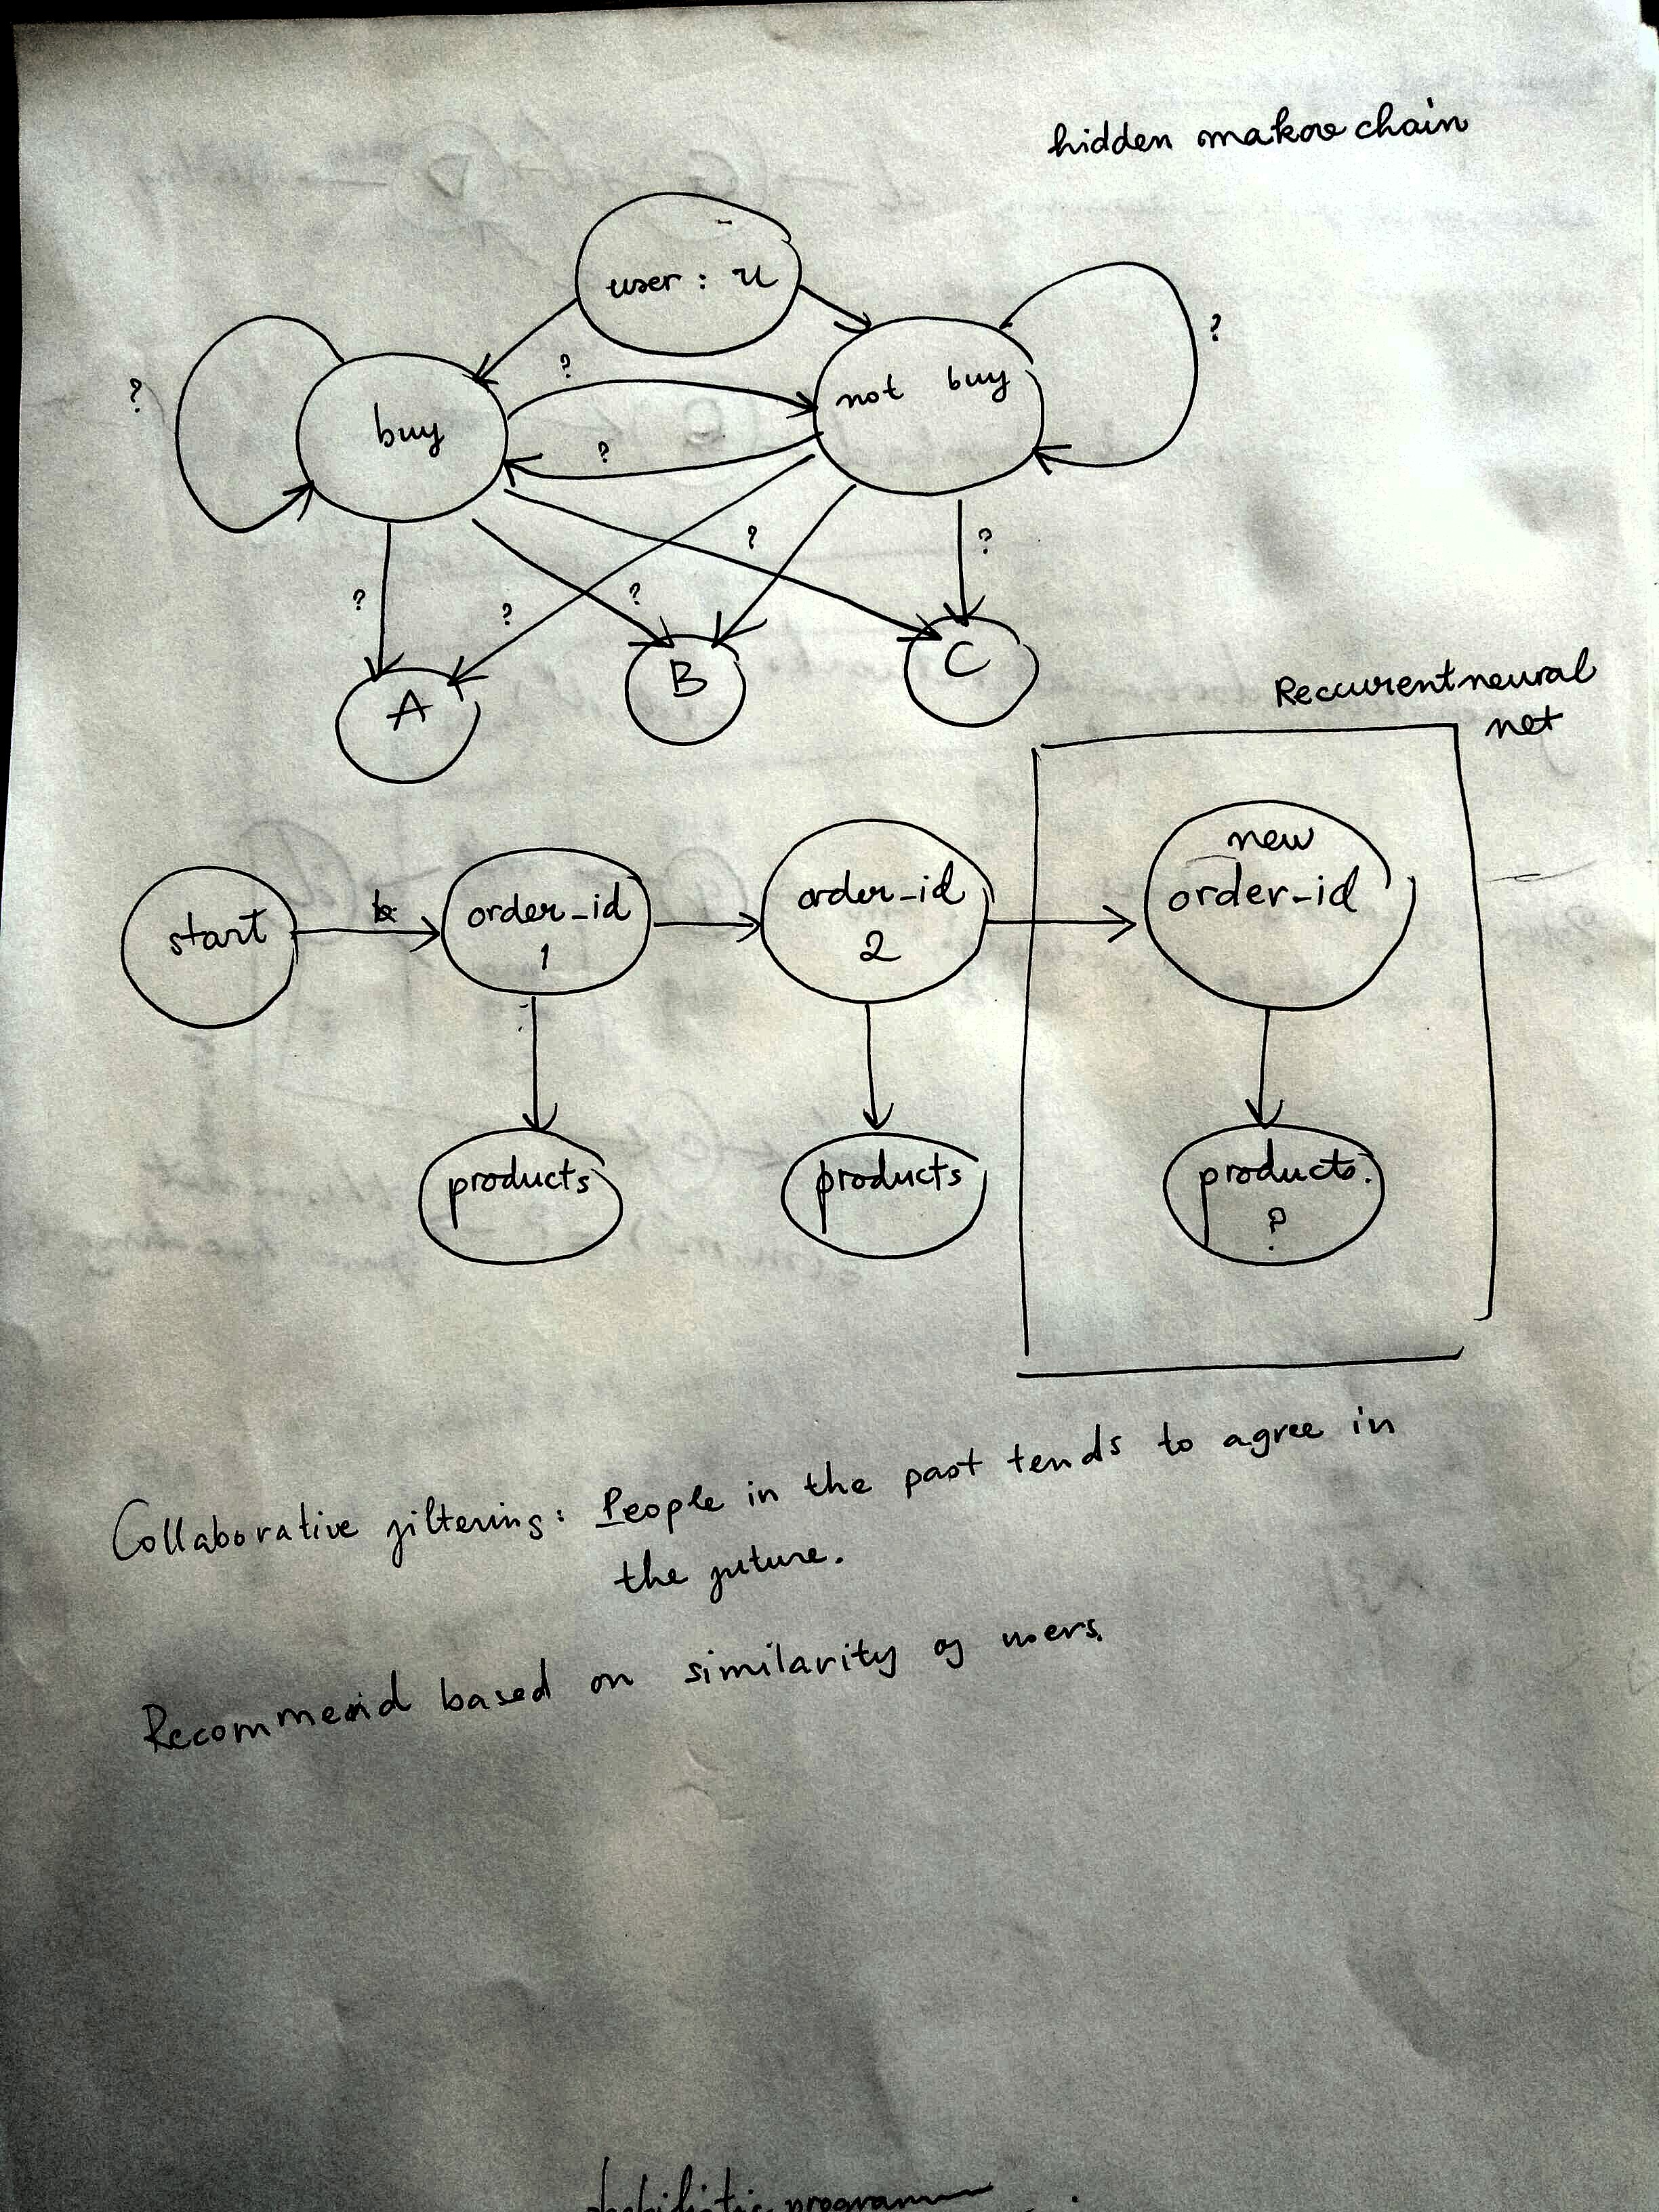 hidden makov chain
user : u
?
?
?
buy
not buy
?
?
?
?
?
?
A
B
C
Reccurent neural
net
start
order_id
1
order_id
2
new
order-id
products
products
products.
?
Collaborative filtering: People in the past tends to agree in
the future.
Recommend based on similarity of users.